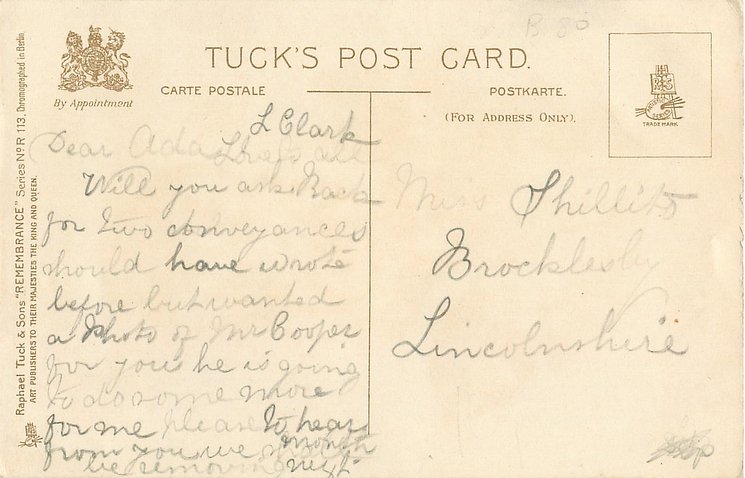 B 80
TUCK'S POST CARD.
By Appointment
CARTE POSTALE
POSTKARTE.
(FOR ADDRESS ONLY).
TRADE MARK
Raphael Tuck & Sons "REMEMBRANCE" Series No R 113. Chromographed in Berlin.
ART PUBLISHERS TO THEIR MAJESTIES THE KING AND QUEEN.
L Clark
Dear Ada Love to all
Will you ask Back
for two conveyances
should have wrote
before but wanted
a Photo of Mr Cooper
for you he is going
to do some more
for me please to hear
from you we
be removing next
month
Miss Shillito
Brocklesby
Lincolnshire